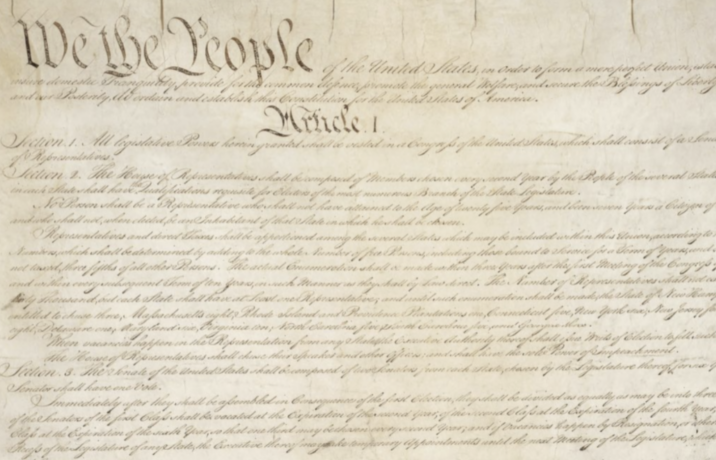 We the People of the United States, in Order to form a more perfect Union,
insure domestic Tranquility, provide for the common defence, promote the general Welfare, and secure the Blessings of
and our Posterity, do ordain and establish this Constitution for the United States of America.
Article. I.
Section. 1. All legislative Powers herein granted shall be vested in a Congress of the United States, which shall consist of a
of Representatives.
Section. 2. The House of Representatives shall be composed of Members chosen every second Year by the People of the several
in each State shall have the Qualifications requisite for Electors of the most numerous Branch of the State Legislature.
No Person shall be a Representative who shall not have attained to the Age of twenty five Years, and been seven Years a Citizen of
and who shall not, when elected, be an Inhabitant of that State in which he shall be chosen.
Representatives and direct Taxes shall be apportioned among the several States which may be included within this Union, according to
Numbers, which shall be determined by adding to the whole Number of free Persons, including those bound to Service for a Term of Years, and
not taxed, three fifths of all other Persons. The actual Enumeration shall be made within three Years after the first Meeting of the Congress
and within every subsequent Term of ten Years, in such Manner as they shall by Law direct. The Number of Representatives shall not
thirty Thousand, but each State shall have at Least one Representative; and until such enumeration shall be made, the State of New
entitled to chuse three, Massachusetts eight, Rhode Island and Providence Plantations one, Connecticut five, New York six, New Jersey
eight, Delaware one, Maryland six, Virginia ten, North Carolina five, South Carolina five, and Georgia three.
When vacancies happen in the Representation from any State, the Executive Authority thereof shall issue Writs of Election to fill
The House of Representatives shall chuse their Speaker and other Officers; and shall have the sole Power of Impeachment.
Section. 3. The Senate of the United States shall be composed of two Senators from each State, chosen by the Legislature thereof, for
Senator shall have one Vote.
Immediately after they shall be assembled in Consequence of the first Election, they shall be divided as equally as may be into
of the Senators of the first Class shall be vacated at the Expiration of the second Year, of the second Class at the Expiration of the fourth Year,
Class at the Expiration of the sixth Year, so that one third may be chosen every second Year; and if Vacancies happen by Resignation, or
Recess of the Legislature of any State, the Executive thereof may make temporary Appointments until the next Meeting of the Legislature,